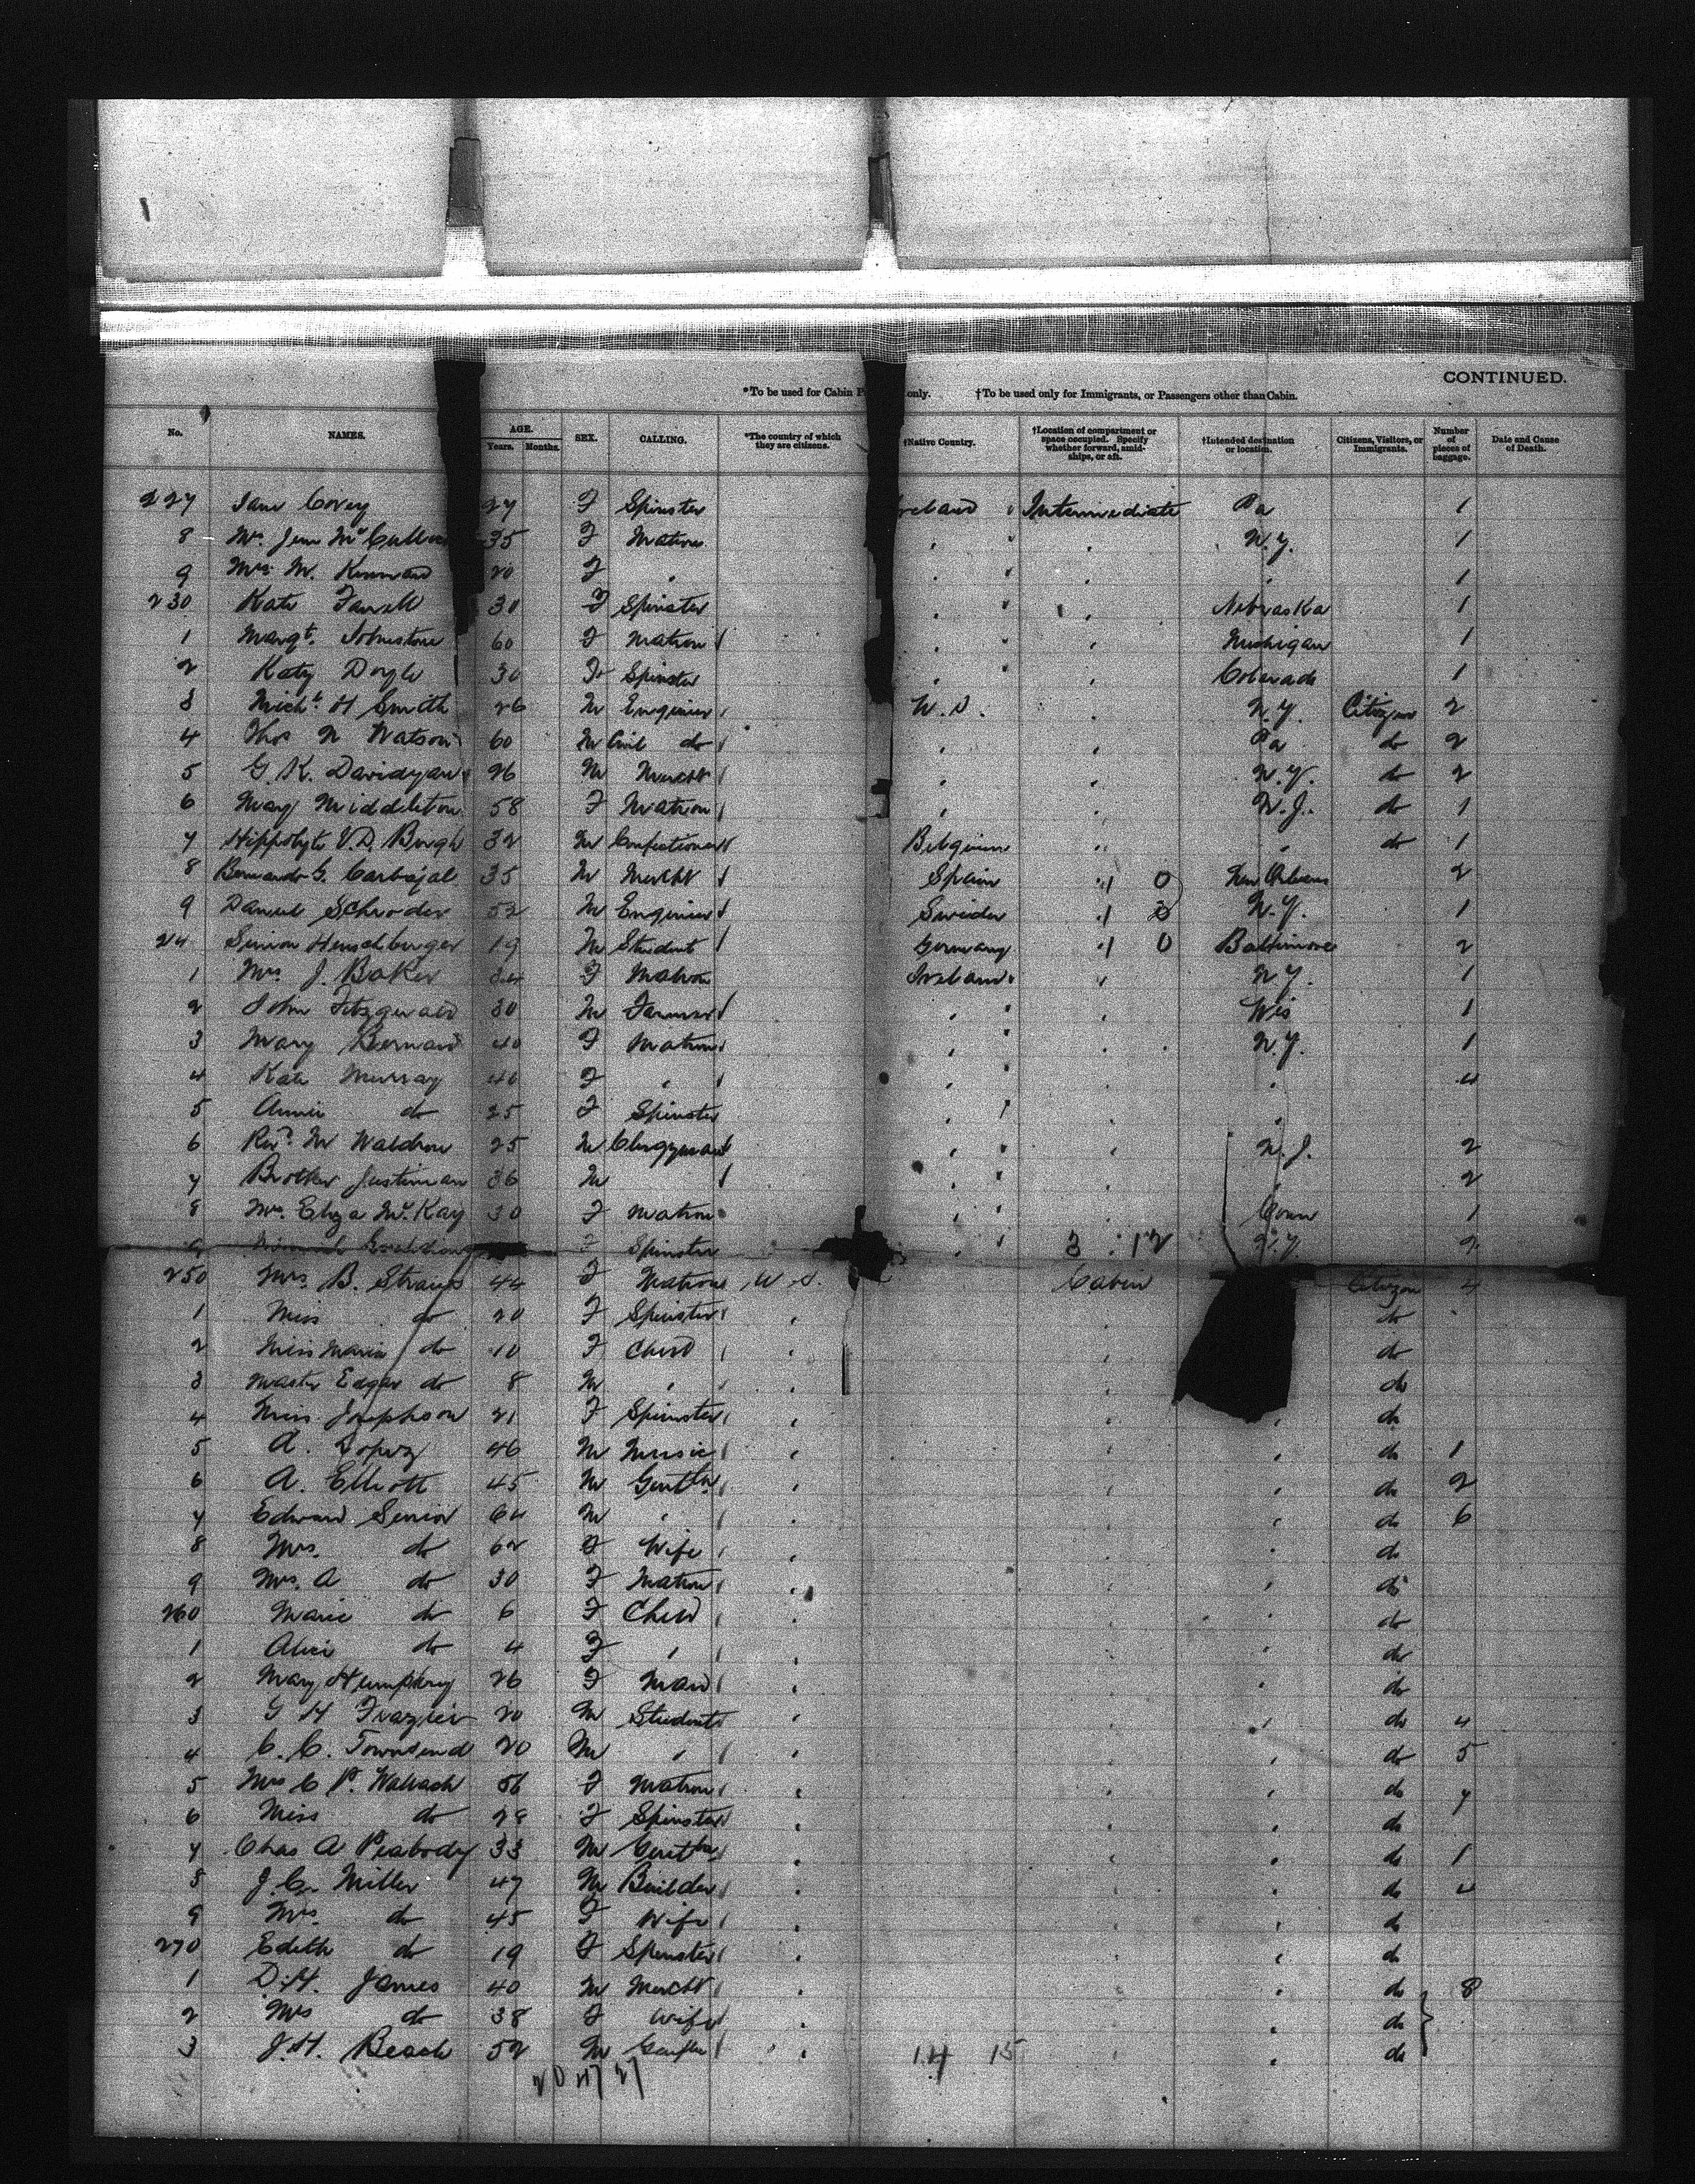 CONTINUED.
*To be used for Cabin P only. †To be used only for Immigrants, or Passengers other than Cabin.
No. NAMES. AGE. Years. Months. SEX. CALLING. *The country of which they are citizens. †Native Country. †Location of compartment or space occupied. Specify whether forward, amidships, or aft. †Intended destination or location. Citizens, Visitors, or Immigrants. Number of pieces of baggage. Date and Cause of Death.
227 Jane Covey 27 F Spinster reland Intermediate Pa 1
8 Mrs. Jem McCull 35 F Matron " " N.Y. 1
9 Mrs. M. Kinnard 20 F " " " " 1
230 Kate Farrell 30 F Spinster " " Nebraska 1
1 Margt. Johnstone 60 F Matron " " Michigan 1
2 Katy Doyle 30 F Spinster " " Colorado 1
3 Michl. H Smith 26 M Engineer U.S. " N.Y. Citizen 2
4 Thos N Watson 60 M Civil do " " Pa do 2
5 G. K. Davidyan 26 M Mercht " " N.Y. do 2
6 Mary Middleton 58 F Matron " " N.J. do 1
7 Hippolyte V.D. Burgh 32 M Confectioner Belgium " " do 1
8 Bernardo G. Carbajal 35 M Mercht Spain " 1 0 New Orleans 2
9 Daniel Schroder 52 M Engineer Sweden " 1 0 N.Y. 1
24 Simon Henschberger 19 M Student Germany " 1 0 Baltimore 2
1 Mrs. J. Baker 34 F Matron Ireland " N.Y. 1
2 John Fitzgerald 30 M Farmer " " Wis 1
3 Mary Bernard 40 F Matron " " N.Y. 1
4 Kate Murray 40 F " " " " 4
5 Annie do 25 F Spinster " " "
6 Revd. M Waldron 25 M Clergyman " " N.J. 2
7 Brother Justinian 36 M " " " 2
8 Mrs. Eliza McKay 30 F Matron " " Conn 1
9 F Spinster " 3 : 12 N.Y. 2
250 Mrs B. Straus 44 F Matron U S. Cabin Citizen 4
1 Miss do 20 F Spinster " " do
2 Miss Maria do 10 F Child " " do
3 Master Edgar do 8 M " " " do
4 Miss Josephson 21 F Spinster " " " do
5 A. Lopez 46 M Music " " " do 1
6 A. Elliott 45 M Gentln " " " do 2
7 Edward Senior 64 M " " " " do 6
8 Mrs. do 62 F Wife " " " do
9 Mrs. A do 30 F Matron " " " do
260 Marie do 6 F Child " " " do
1 Alice do 4 F " " " " do
2 Mary Humphry 26 F Maid " " " do
3 G H Frazier 20 M Student " " " do 4
4 C. C. Townsend 20 M " " " " do 5
5 Mrs C P. Walbach 56 F Matron " " " do 7
6 Miss do 28 F Spinster " " " do
7 Chas A Peabody 33 M Gentln " " " do 1
8 J. C. Miller 47 M Builder " " " do 4
9 Mrs. do 45 F Wife " " " do
270 Edith do 19 F Spinster " " " do
1 D. H. James 40 M Mercht " " " do 8
2 Mrs do 38 F Wife " " " do
3 J. H. Beach 52 M Gentln " 14 15 " " do
20 47 27